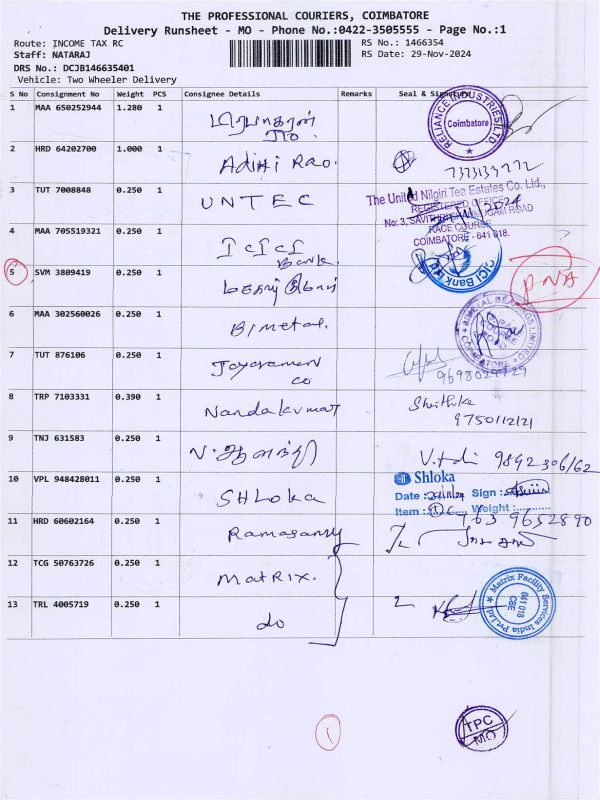 THE PROFESSIONAL COURIERS, COIMBATORE
Delivery Runsheet - MO - Phone No.:0422-3505555 - Page No.:1
Route: INCOME TAX RC
RS No.: 1466354
Staff: NATARAJ
RS Date: 29-Nov-2024
DRS No.: DCJB146635401
Vehicle: Two Wheeler Delivery
S No Consignment No Weight PCS Consignee Details Remarks Seal & Signature
1 MAA 650252944 1.280 PCS
RELIANCE INDUSTRIES LTD.
Coimbatore
2 HRD 64202700 1.000 PCS Adithi Rao.
3 TUT 7008848 0.250 PCS UNTEC
The United Nilgiri Tea Estates Co. Ltd.,
REGISTERED OFFICE
RACE COURSE
COIMBATORE - 641 018.
4 MAA 705519321 0.250 PCS ICICI
Bank.
ICICI Bank Ltd
5 SVM 3809419 0.250 PCS
6 MAA 302560026 0.250 PCS Bimetal.
BIMETAL BEARINGS LIMITED
COIMBATORE
7 TUT 876106 0.250 PCS Jayaraman
co
8 TRP 7103331 0.390 PCS Nandakumar
9750112121
9 TNJ 631583 0.250 PCS
9842306162
10 VPL 948428011 0.250 PCS SHLoka
Shloka
Date : Sign :
Item : Weight :
763 9652890
11 HRD 60602164 0.250 PCS Ramasamy
12 TCG 50763726 0.250 PCS Matrix.
13 TRL 4005719 0.250 PCS do
2
Matrix Facility Services India Pvt.Ltd
641 018
CBE
1
TPC
MO